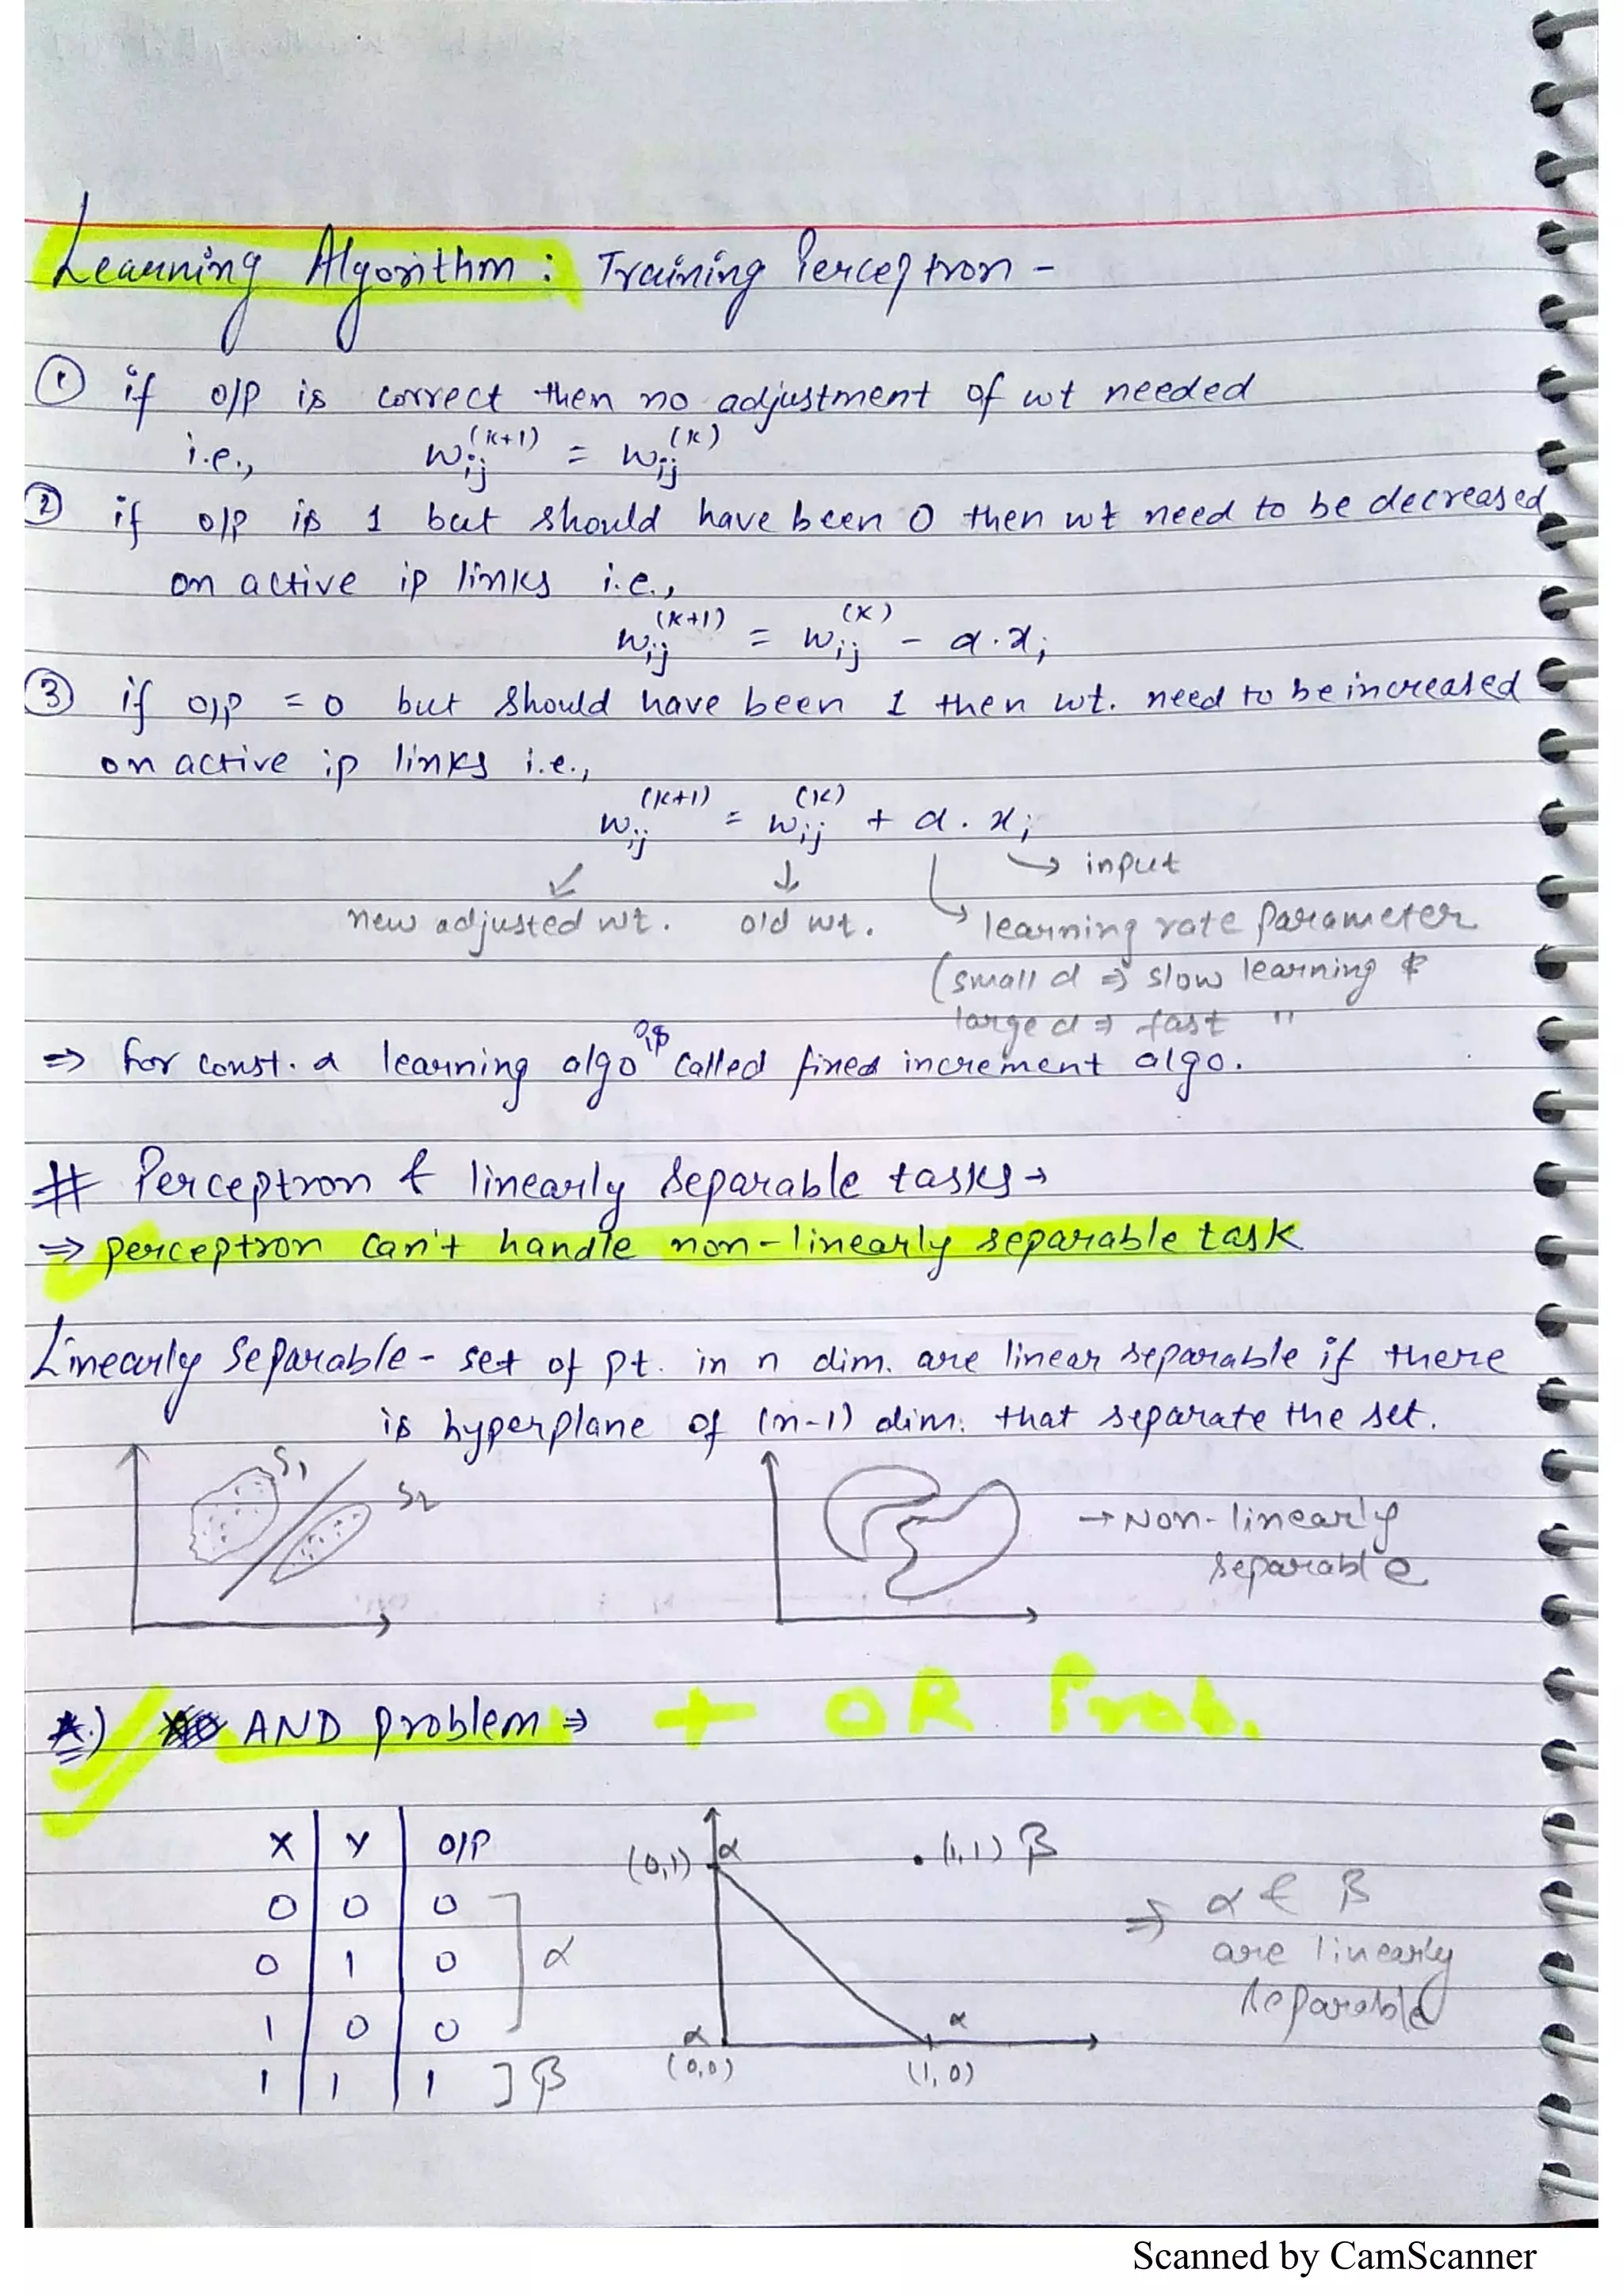 Learning Algorithm: Training Perceptron -
① if o/p is correct then no adjustment of wt needed
i.e., wij^(k+1) = wij^(k)
② if o/p is 1 but should have been 0 then wt need to be decreased
on active ip links i.e.,
wij^(k+1) = wij^(k) - α.xi
③ if o/p = 0 but should have been 1 then wt. need to be increased
on active ip links i.e.,
wij^(k+1) = wij^(k) + α.xi
→ input
new adjusted wt. old wt. → learning rate parameter
(small α ⇒ slow learning &
large α ⇒ fast "
⇒ for const. α learning algo is called fixed increment algo.
# Perceptron & linearly separable tasks →
⇒ perceptron can't handle non-linearly separable task
Linearly Separable - set of pt. in n dim. are linear separable if there
is hyperplane of (n-1) dim. that separate the set.
S1
S2
→ Non-linearly
separable
*.) AND problem ⇒ + OR Prob.
X Y O/P
0 0 0
0 1 0
1 0 0
1 1 1
α
β
(0,1) α
. (1,1) β
α
(0,0)
α
(1,0)
⇒ α & β
are linearly
separable
Scanned by CamScanner